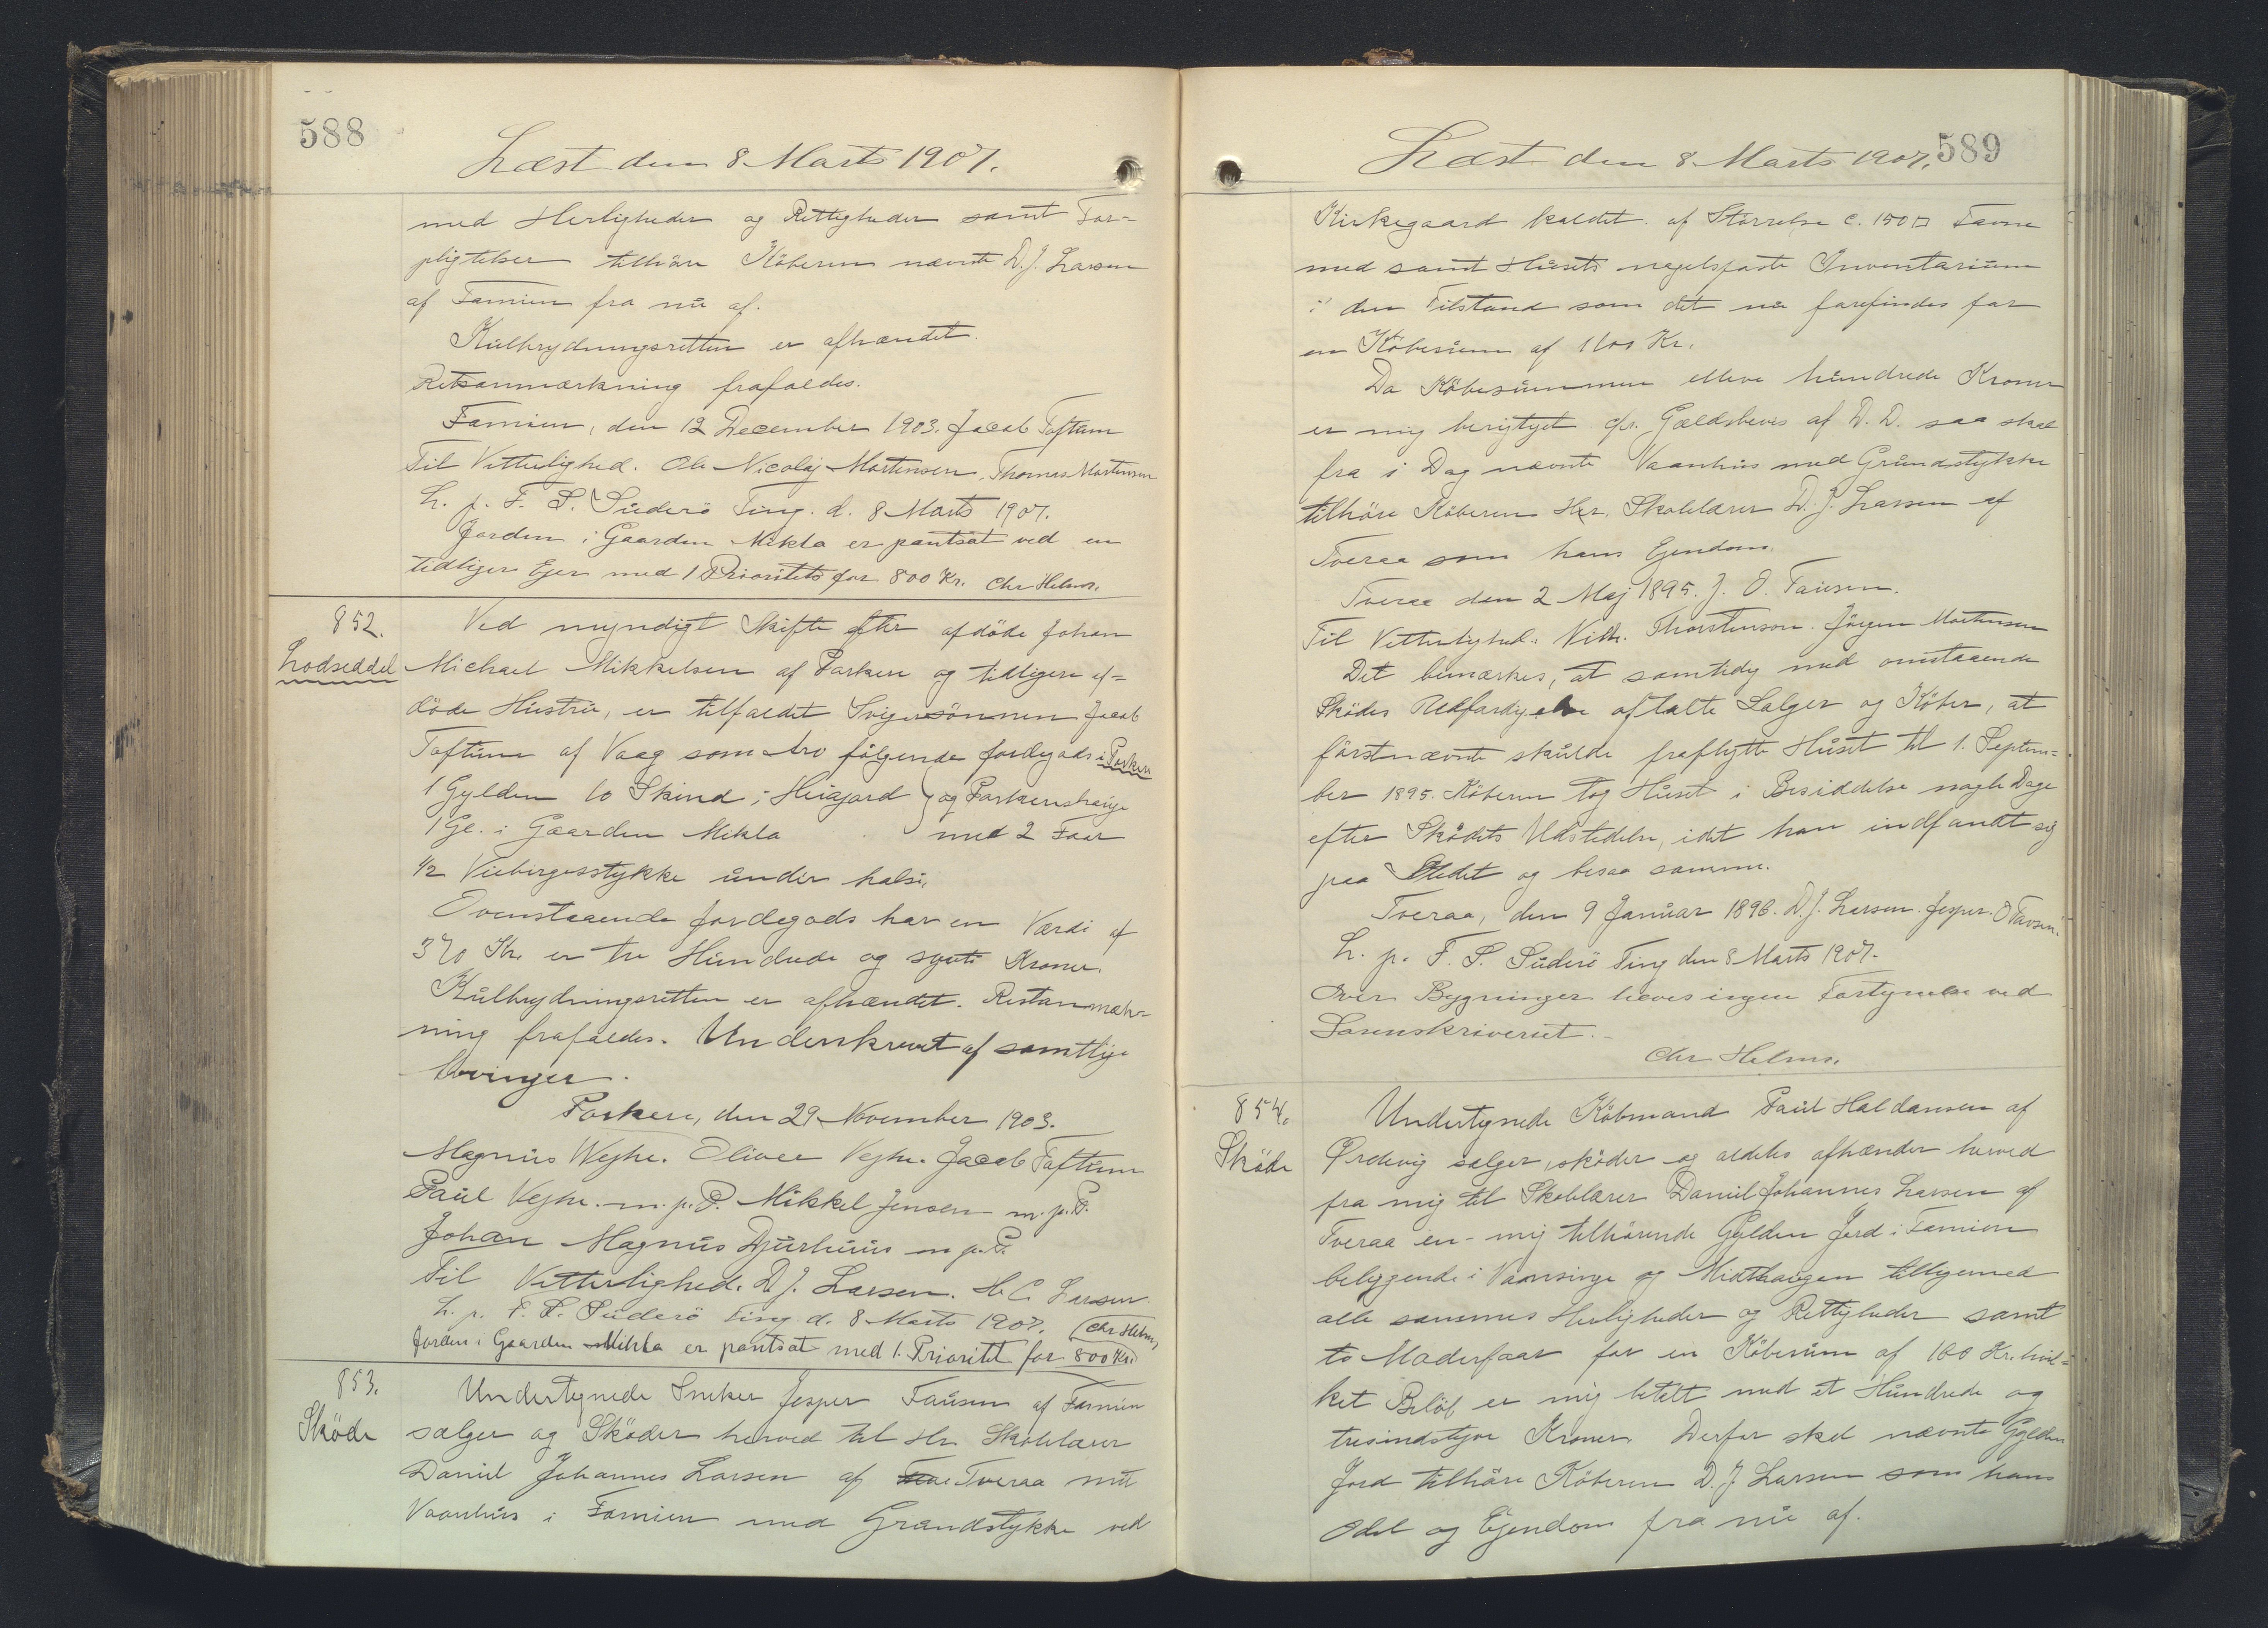 588
Læst den 8 Marts 1907.
med Herligheder og Rettigheder samt For-
pligtelser tilhöre Köberen nævnte D. J. Larsen
af Famien fra nu af.
Kulbrydningsretten er afhændet.
Retsanmærkning frafaldes.
Famien, den 12 December 1903. Jacob Toftum
Til Vitterlighed. Ole Nicolaj Mortensen, Thomas Mortensen
L. p. F. S. Suderö Ting. d. 8 Marts 1907.
Jorden i Gaarden Mikla er pantsat ved en
tidligere Ejer med 1 Prioritets for 800 Kr. Chr Helms.
852.
Lodseddel
Ved myndigt Skifte efter afdöde Johan
Michael Mikkelsen af Porkere og tidligere af-
döde Hustru, er tilfaldet Svigersönnen Jacob
Toftum af Vaag som Arv fölgende Jordegods i Porkere
1 Gylden 10 Skind i Heiagard } og Porkershauge
1 Gl. i Gaarden Mikla med 2 Faar
1/2 Viebergesstykke under halsi.
Ovenstaaende Jordegods har en Værdi af
370 Kr. er tre Hundrede og syvti Kroner.
Kulbrydningsretten er afhændet. Restanmærk-
ning frafaldes. Underskrevet af samtlige
Arvinger.
Porkere, den 29 November 1903.
Magnus Wejhe. Olivee Vejhe. Jacob Toftum
Paul Vejhe. m. p. P. Mikkel Jensen m. p. P.
Johan Magnus Djurhuus m p. P.
Til Vitterlighed. D. J. Larsen. H. C. Larsen
L. p. F. S. Suderö Ting. d. 8 Marts 1907. Chr Helms
Jorden i Gaarden Mikla er pantsat med 1. Prioritet for 800 Kr.
853.
Sköde
Undertegnede Sneker Jesper Tausen af Famien
sælger og Sköder herved til Hr. Skolelærer
Daniel Johannes Larsen af Tveraa mit
Vaanhus i Famien med Grundstykke ved
589
Læst den 8 Marts 1907.
Kirkegaard kaldet af Störrelse c. 150 □ Favne
med samt Husets nagelfaste Inventarium
i den Tilstand som det nu forefindes for
en Köbesum af 1100 Kr.
Da Köbesummen elleve hundrede Kroner
er mig berigtyet pr. Gældsbevis af D. D. saa skal
fra i Dag nævnte Vaanhus med Grundstykke
tilhöre Köberen Hr. Skolelærer D. J. Larsen af
Tveraa som hans Ejendom.
Tveraa den 2 Maj 1895. J. O. Tausen.
Til Vitterlighed. Nith. Thorstenson. Jörgen Mortensen
Det bemærkes, at samtidig med omstaaende
Sködes Udfærdigelse aftalte Sælger og Köber, at
förstnævnte skulde fraflytte Huset til 1. Septem-
ber 1895. Köberen tog Huset i Besiddelse nogle Dage
efter Sködets Udstedelse, idet han indfandt sig
paa Stedet og besaa samme.
Tveraa, den 9 Januar 1896. D. J. Larsen. Jesper. O Tavsen.
L. p. F. S. Suderö Ting den 8 Marts 1907.
Over Bygninger haves ingen Fortegnelse ved
Sorenskriveriet.
Chr Helms.
854.
Sköde
Undertegnede Köbmand Paul Haldansen af
Ördevig sælger, sköder og aldeles afhænder herved
fra mig til Skolelærer Daniel Johannes Larsen af
Tveraa en mig tilhörende Gylden Jord i Famien
beliggende i Vaansinge og Midthaugen tilligemed
alle sammes Herligheder og Rettigheder samt
to Moderfaar for en Köbesum af 160 Kr. hvil-
ket Belöb er mig betalt med et Hundrede og
tresindstyve Kroner. Derfor skal nævnte Gylden
Jord tilhöre Köberen D. J. Larsen som hans
Odel og Ejendom fra nu af.